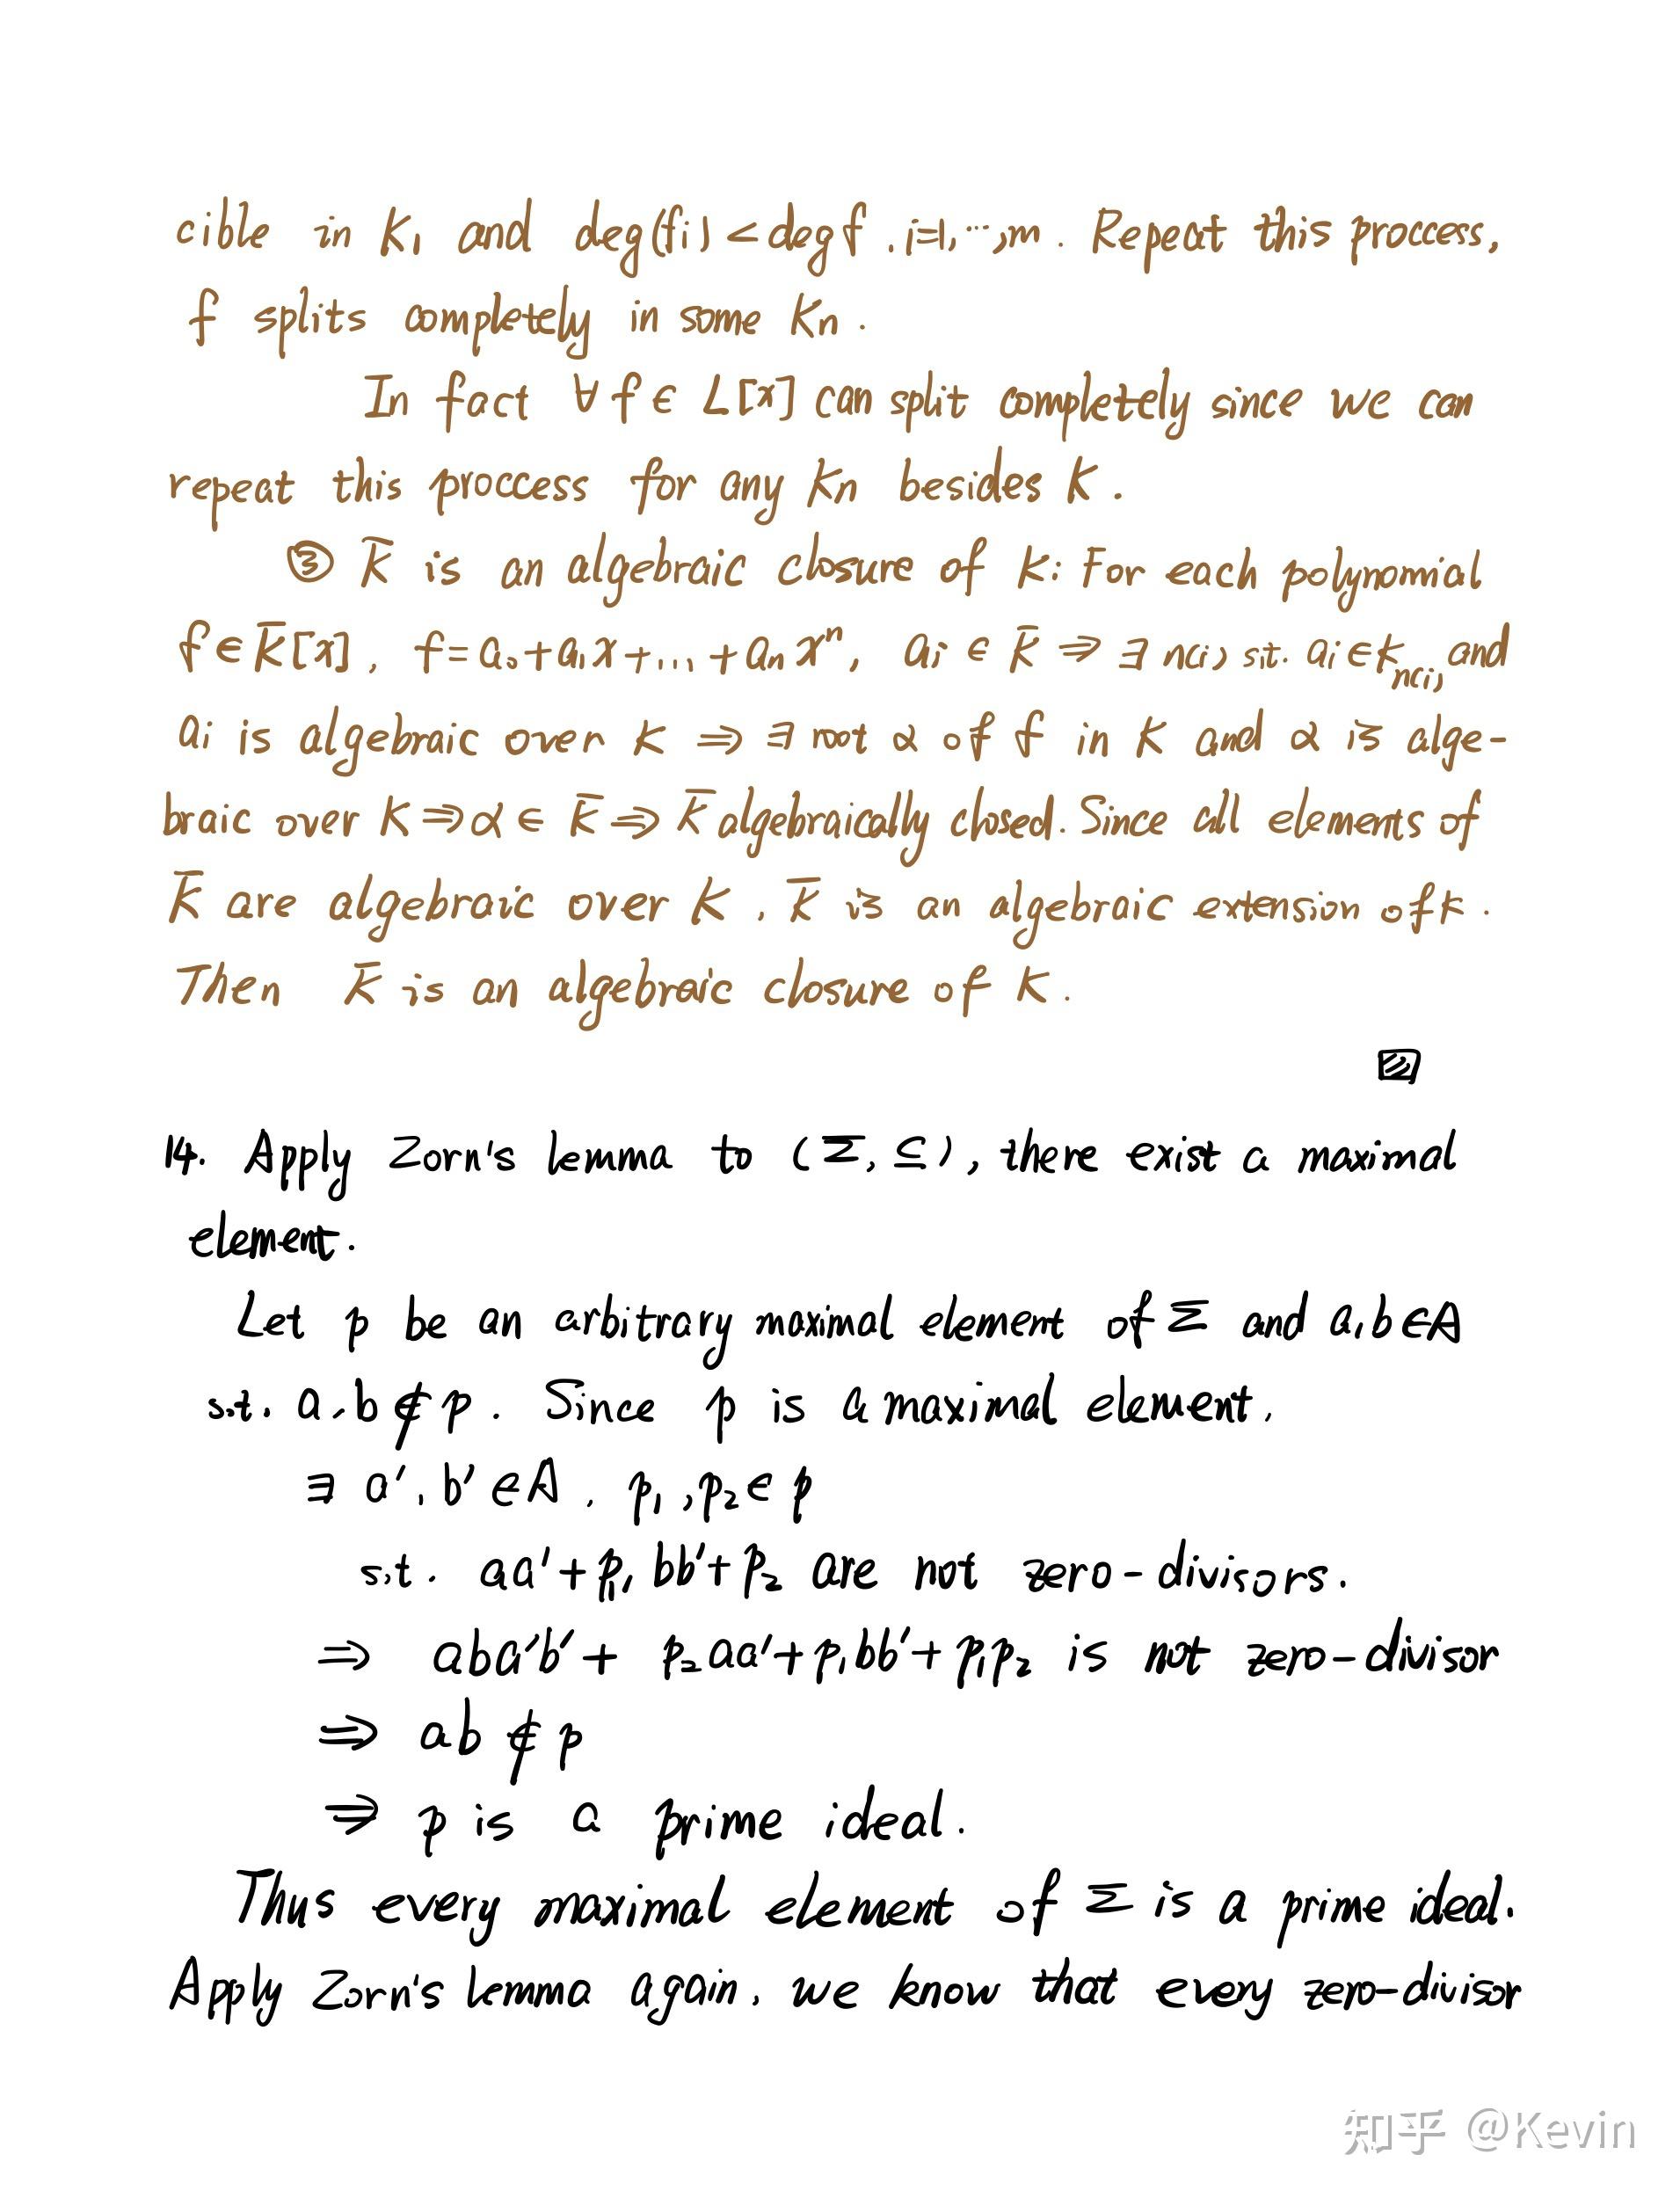 cible in K₁ and deg(fi) < deg f, i=1,⋯,m. Repeat this proccess,
f splits completely in some Kn.
In fact ∀ f ∈ L[x] can split completely since we can
repeat this proccess for any Kn besides K.
③ K̄ is an algebraic closure of K: For each polynomial
f ∈ K̄[x], f = a₀+a₁x+...+anxⁿ, ai ∈ K̄ ⇒ ∃ n(i) s.t. ai ∈ K_n(i) and
ai is algebraic over K ⇒ ∃ root α of f in K and α is alge-
braic over K ⇒ α ∈ K̄ ⇒ K̄ algebraically closed. Since all elements of
K̄ are algebraic over K, K̄ is an algebraic extension of K.
Then K̄ is an algebraic closure of K.
14. Apply Zorn's lemma to (Σ, ⊆), there exist a maximal
element.
Let p be an arbitrary maximal element of Σ and a,b ∈ A
s.t. a,b ∉ p. Since p is a maximal element,
∃ a',b' ∈ A, p₁,p₂ ∈ p
s.t. aa'+p₁, bb'+p₂ are not zero-divisors.
⇒ aba'b' + p₂aa'+p₁bb'+p₁p₂ is not zero-divisor
⇒ ab ∉ p
⇒ p is a prime ideal.
Thus every maximal element of Σ is a prime ideal.
Apply Zorn's lemma again, we know that every zero-divisor
知乎 @Kevin